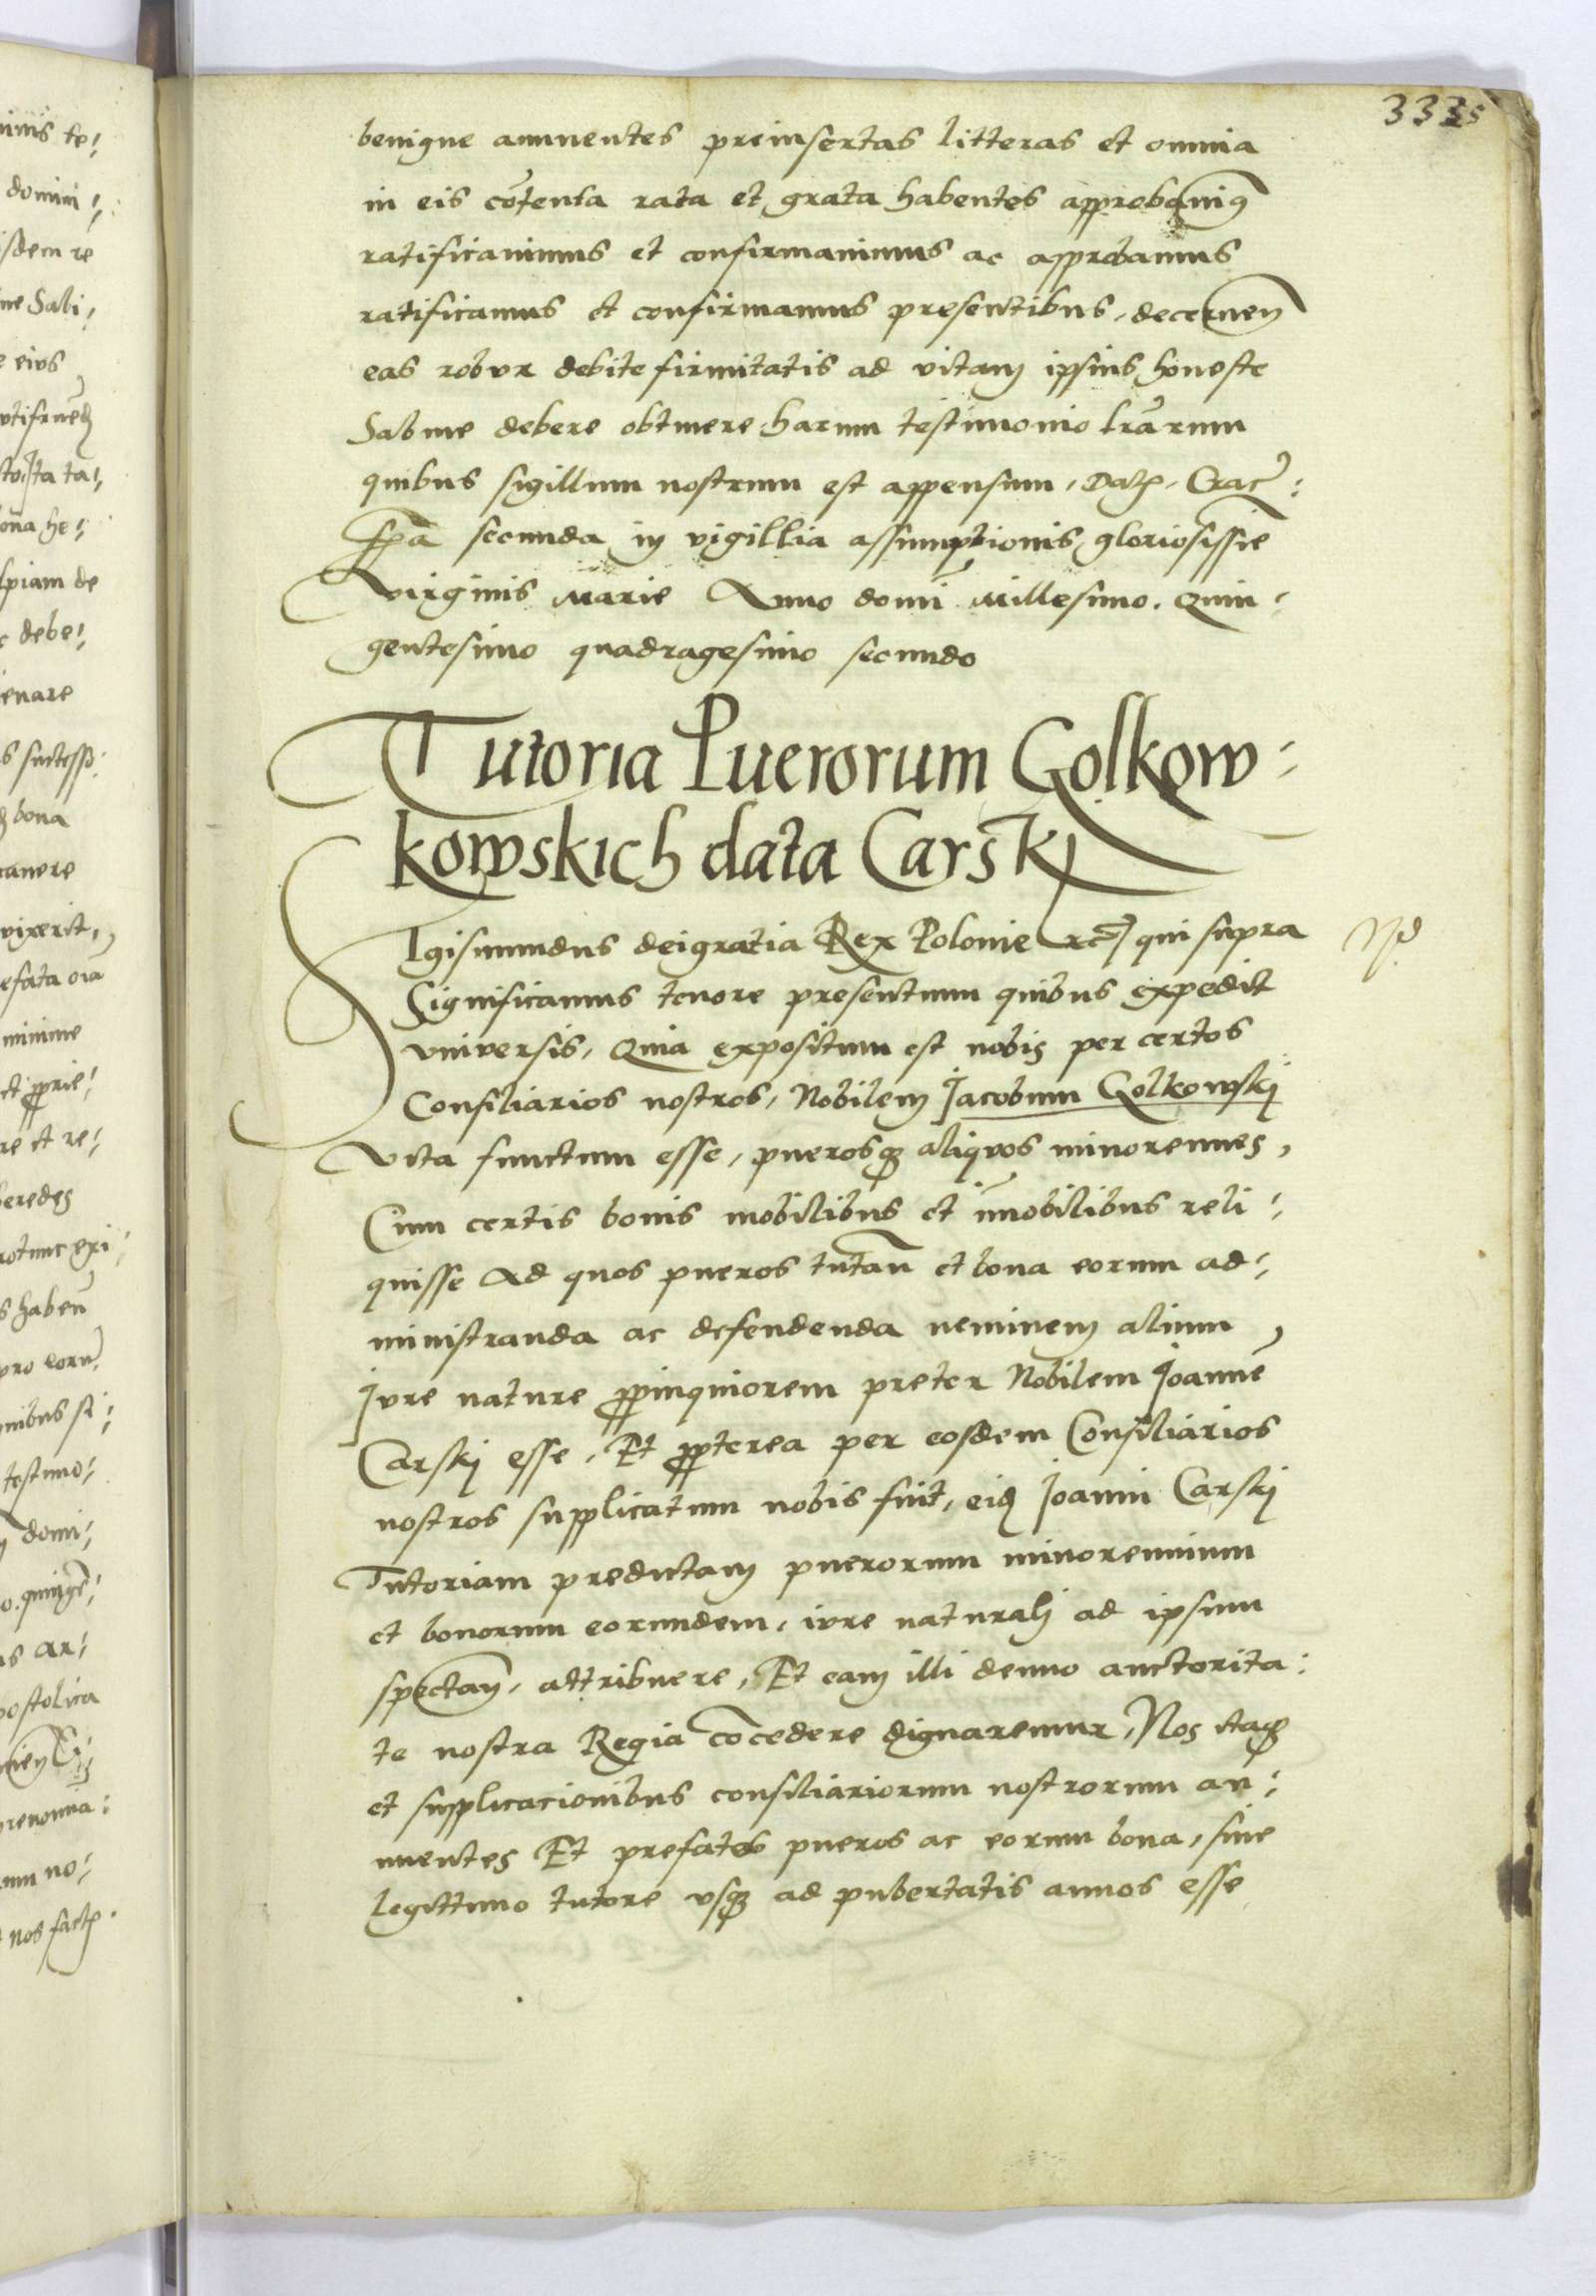 3335
benigne annuentes preinsertas litteras et omnia
in eis cõtenta rata et grata habentes approbanimꝰ
ratificanimus et confirmanimus ac approbamus
ratificamus et confirmamus presentibus, decernen
eas robur debite firmitatis ad vitam ipsius honeste
Sabine debere obtinere harum testimonio lrãrum
quibus sigillum nostrum est appensum, Datꝭ, Crac̃:
fr̃a secunda in vigillia assumptionis gloriosissie
virginis Marie Anno domi Millesimo. Quin:
gentesimo quadragesimo secundo
Tutoria Puerorum Golkow:
kowskich data Carskj
Sigismundus dei gratia Rex Polonie rc̃ qui supra
Significamus tenore presentium quibus expedit
vniversis, Quia expositum est nobis per certos
Consiliarios nostros, Nobilem Jacobum Golkowskj
Vita functum esse, puerosqꝫ aliqvos minorennes,
Cum certis bonis mobilibus et im̃obilibus reli:
quisse Ad quos pueros tutan̄ et bona eorum ad:
ministranda ac defendenda neminem alium,
Jure nature ꝓpinquiorem preter Nobilem Joannẽ
Carskj esse, Et ꝓpterea per eosdem Consiliarios
nostros supplicatum nobis fuit, eid Joanni Carskj
Tutoriam predictam puerorum minorennium
et bonorum eorundem, iure naturalj ad ipsum
spectan̄, attribuere, Et eam illi denuo auctorita:
te nostra Regia cõcedere dignaremur, Nos itaqꝫ
et supplicacionibus consiliariorum nostrorum an:
nuentes Et prefatos pueros ac eorum bona, sine
legittimo tutore vsqꝫ ad pubertatis annos esse